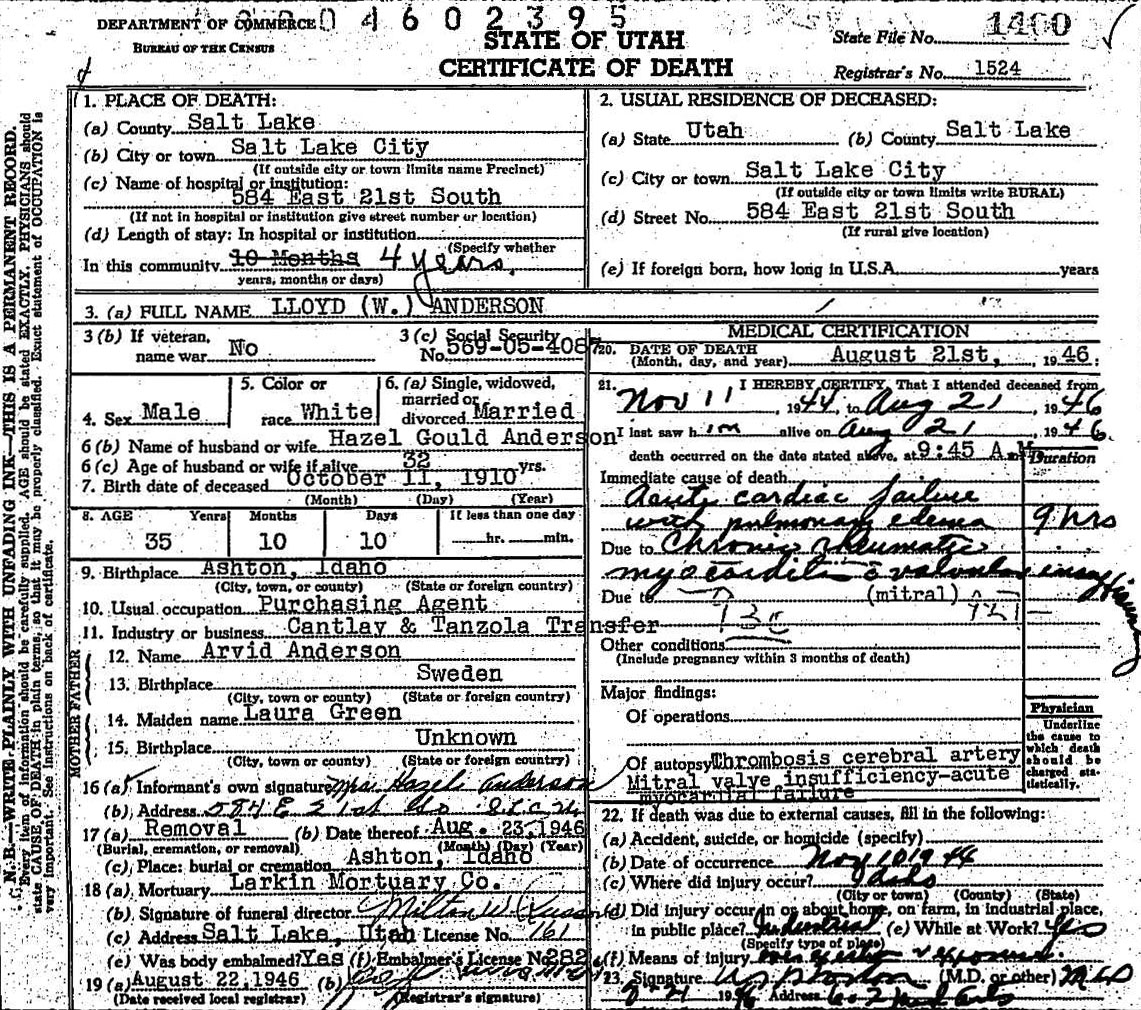 DEPARTMENT OF COMMERCE
04602395
BUREAU OF THE CENSUS
STATE OF UTAH
CERTIFICATE OF DEATH
State File No. 1460
Registrar's No. 1524
N.B.—WRITE PLAINLY WITH UNFADING INK—THIS IS A PERMANENT RECORD.
Every item of information should be carefully supplied. AGE should be stated EXACTLY. PHYSICIANS should
state CAUSE OF DEATH in plain terms, so that it may be properly classified. Exact statement of OCCUPATION is
very important. See instructions on back of certificate.
1. PLACE OF DEATH:
(a) County Salt Lake
(b) City or town Salt Lake City
(If outside city or town limits name Precinct)
(c) Name of hospital or institution:
584 East 21st South
(If not in hospital or institution give street number or location)
(d) Length of stay: In hospital or institution
(Specify whether
In this community 10 Months 4 years.
years, months or days)
2. USUAL RESIDENCE OF DECEASED:
(a) State Utah (b) County Salt Lake
(c) City or town Salt Lake City
(If outside city or town limits write RURAL)
(d) Street No. 584 East 21st South
(If rural give location)
(e) If foreign born, how long in U.S.A. years
3. (a) FULL NAME LLOYD (W.) ANDERSON
3 (b) If veteran, name war No
3 (c) Social Security No. 569-05-408
4. Sex Male
5. Color or race White
6. (a) Single, widowed, married or divorced Married
6 (b) Name of husband or wife Hazel Gould Anderson
6 (c) Age of husband or wife if alive 32 yrs.
7. Birth date of deceased October 11, 1910
(Month) (Day) (Year)
8. AGE Years Months Days If less than one day
35 10 10 hr. min.
9. Birthplace Ashton, Idaho
(City, town, or county) (State or foreign country)
10. Usual occupation Purchasing Agent
11. Industry or business Cantlay & Tanzola Transfer
FATHER
12. Name Arvid Anderson
13. Birthplace Sweden
(City, town or county) (State or foreign country)
MOTHER
14. Maiden name Laura Green
15. Birthplace Unknown
(City, town or county) (State or foreign country)
16 (a) Informant's own signature Mrs. Hazel Anderson
(b) Address 584 E 21st So S.L.C.
17 (a) Removal (b) Date thereof Aug. 23, 1946
(Burial, cremation, or removal) (Month) (Day) (Year)
(c) Place: burial or cremation Ashton, Idaho
18 (a) Mortuary Larkin Mortuary Co.
(b) Signature of funeral director Milton W.
(c) Address Salt Lake, Utah License No. 161
(e) Was body embalmed? Yes (f) Embalmer's License No. 282
19 (a) August 22, 1946 (b)
(Date received local registrar) (Registrar's signature)
MEDICAL CERTIFICATION
20. DATE OF DEATH August 21st, 1946
(Month, day, and year)
21. I HEREBY CERTIFY, That I attended deceased from
Nov 11, 1944, to Aug 21, 1946
I last saw him alive on Aug 21, 1946
death occurred on the date stated above, at 9:45 A.M.
Duration
Immediate cause of death
Acute cardiac failure
with pulmonary edema 9 hrs
Due to Chronic rheumatic
myocarditis c valvular insufficiency
Due to (mitral)
Other conditions
(Include pregnancy within 3 months of death)
Major findings:
Of operations
Of autopsy Thrombosis cerebral artery
Mitral valve insufficiency-acute
myocardial failure
Physician
Underline the cause to which death should be charged statistically.
22. If death was due to external causes, fill in the following:
(a) Accident, suicide, or homicide (specify)
(b) Date of occurrence Nov 10 1944
(c) Where did injury occur? Idaho
(City or town) (County) (State)
(d) Did injury occur in or about home, on farm, in industrial place,
in public place? Industrial (e) While at Work? Yes
(Specify type of place)
(f) Means of injury
23. Signature (M.D. or other) MD
1946 Address